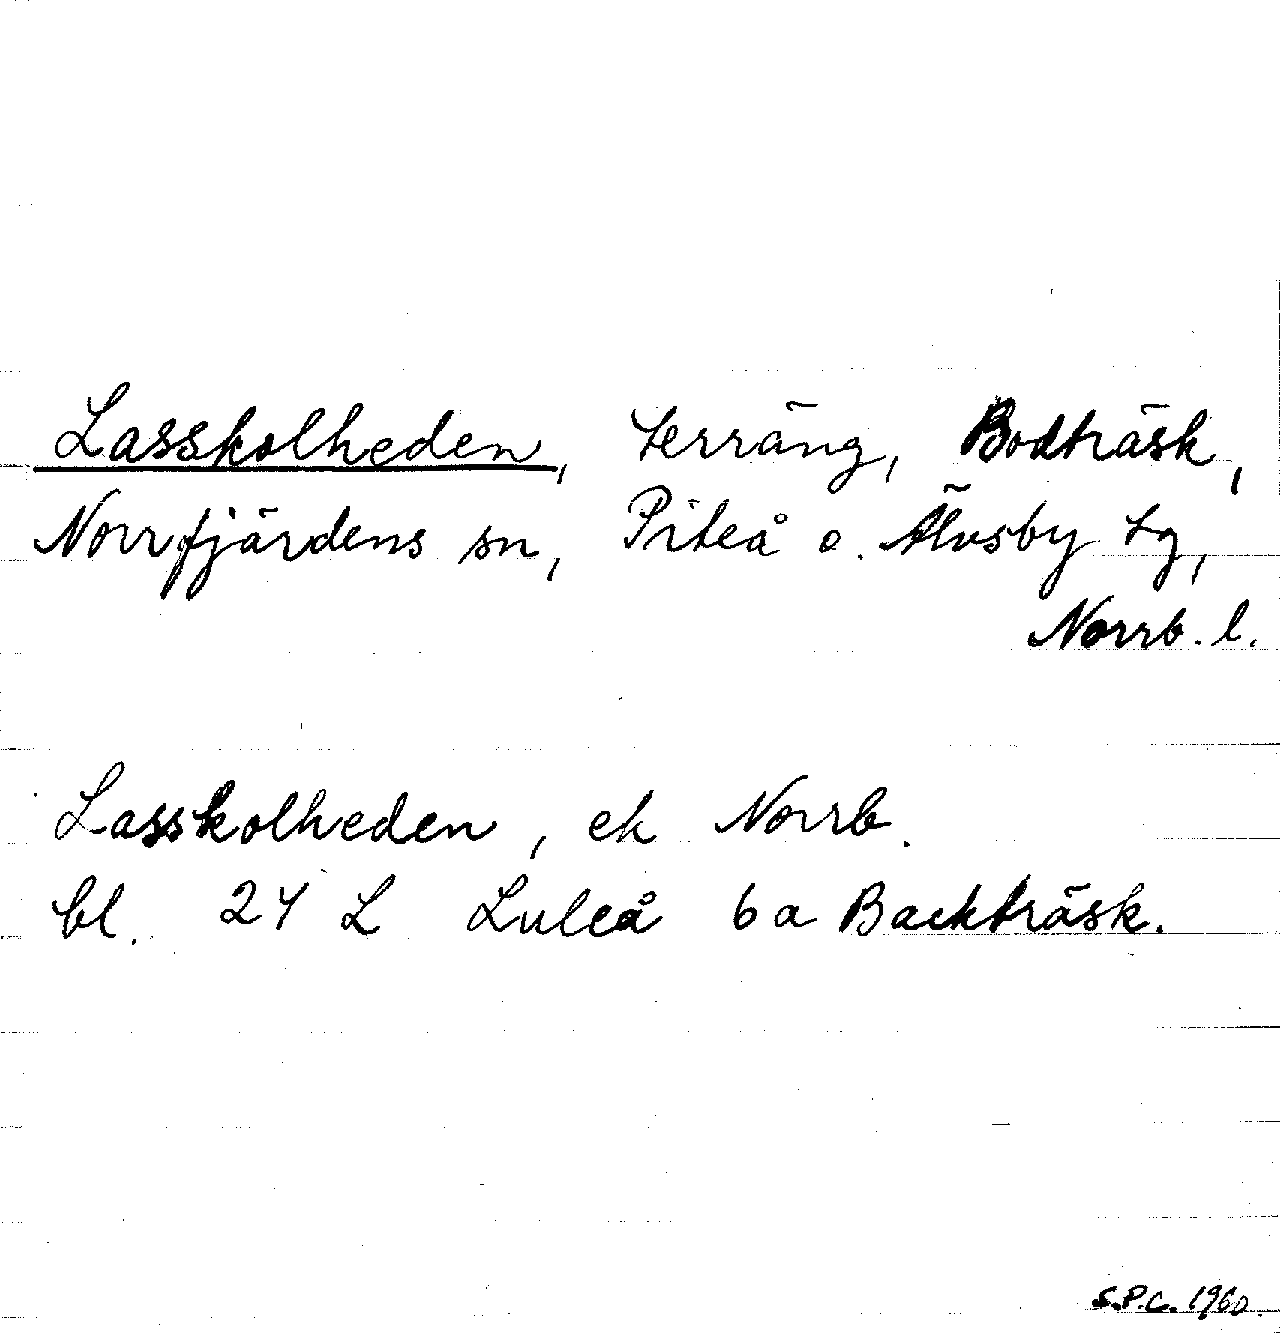 Lasskolheden, terräng, Bodträsk,
Norrfjärdens sn, Piteå o. Älvsby tg,
Norrb. l.
Lasskolheden, ek Norrb.
bl. 24 L Luleå 6a Backträsk.
S.P.C. 1960.